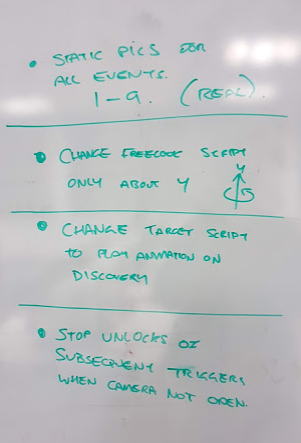 • STATIC PICS FOR
ALL EVENTS.
1-9. (REAL).
• CHANGE FREELOOK SCRIPT
ONLY ABOUT Y
Y
• CHANGE TARGET SCRIPT
TO PLAY ANIMATION ON
DISCOVERY
• STOP UNLOCKS OF
SUBSEQUENT TRIGGERS
WHEN CAMERA NOT OPEN.